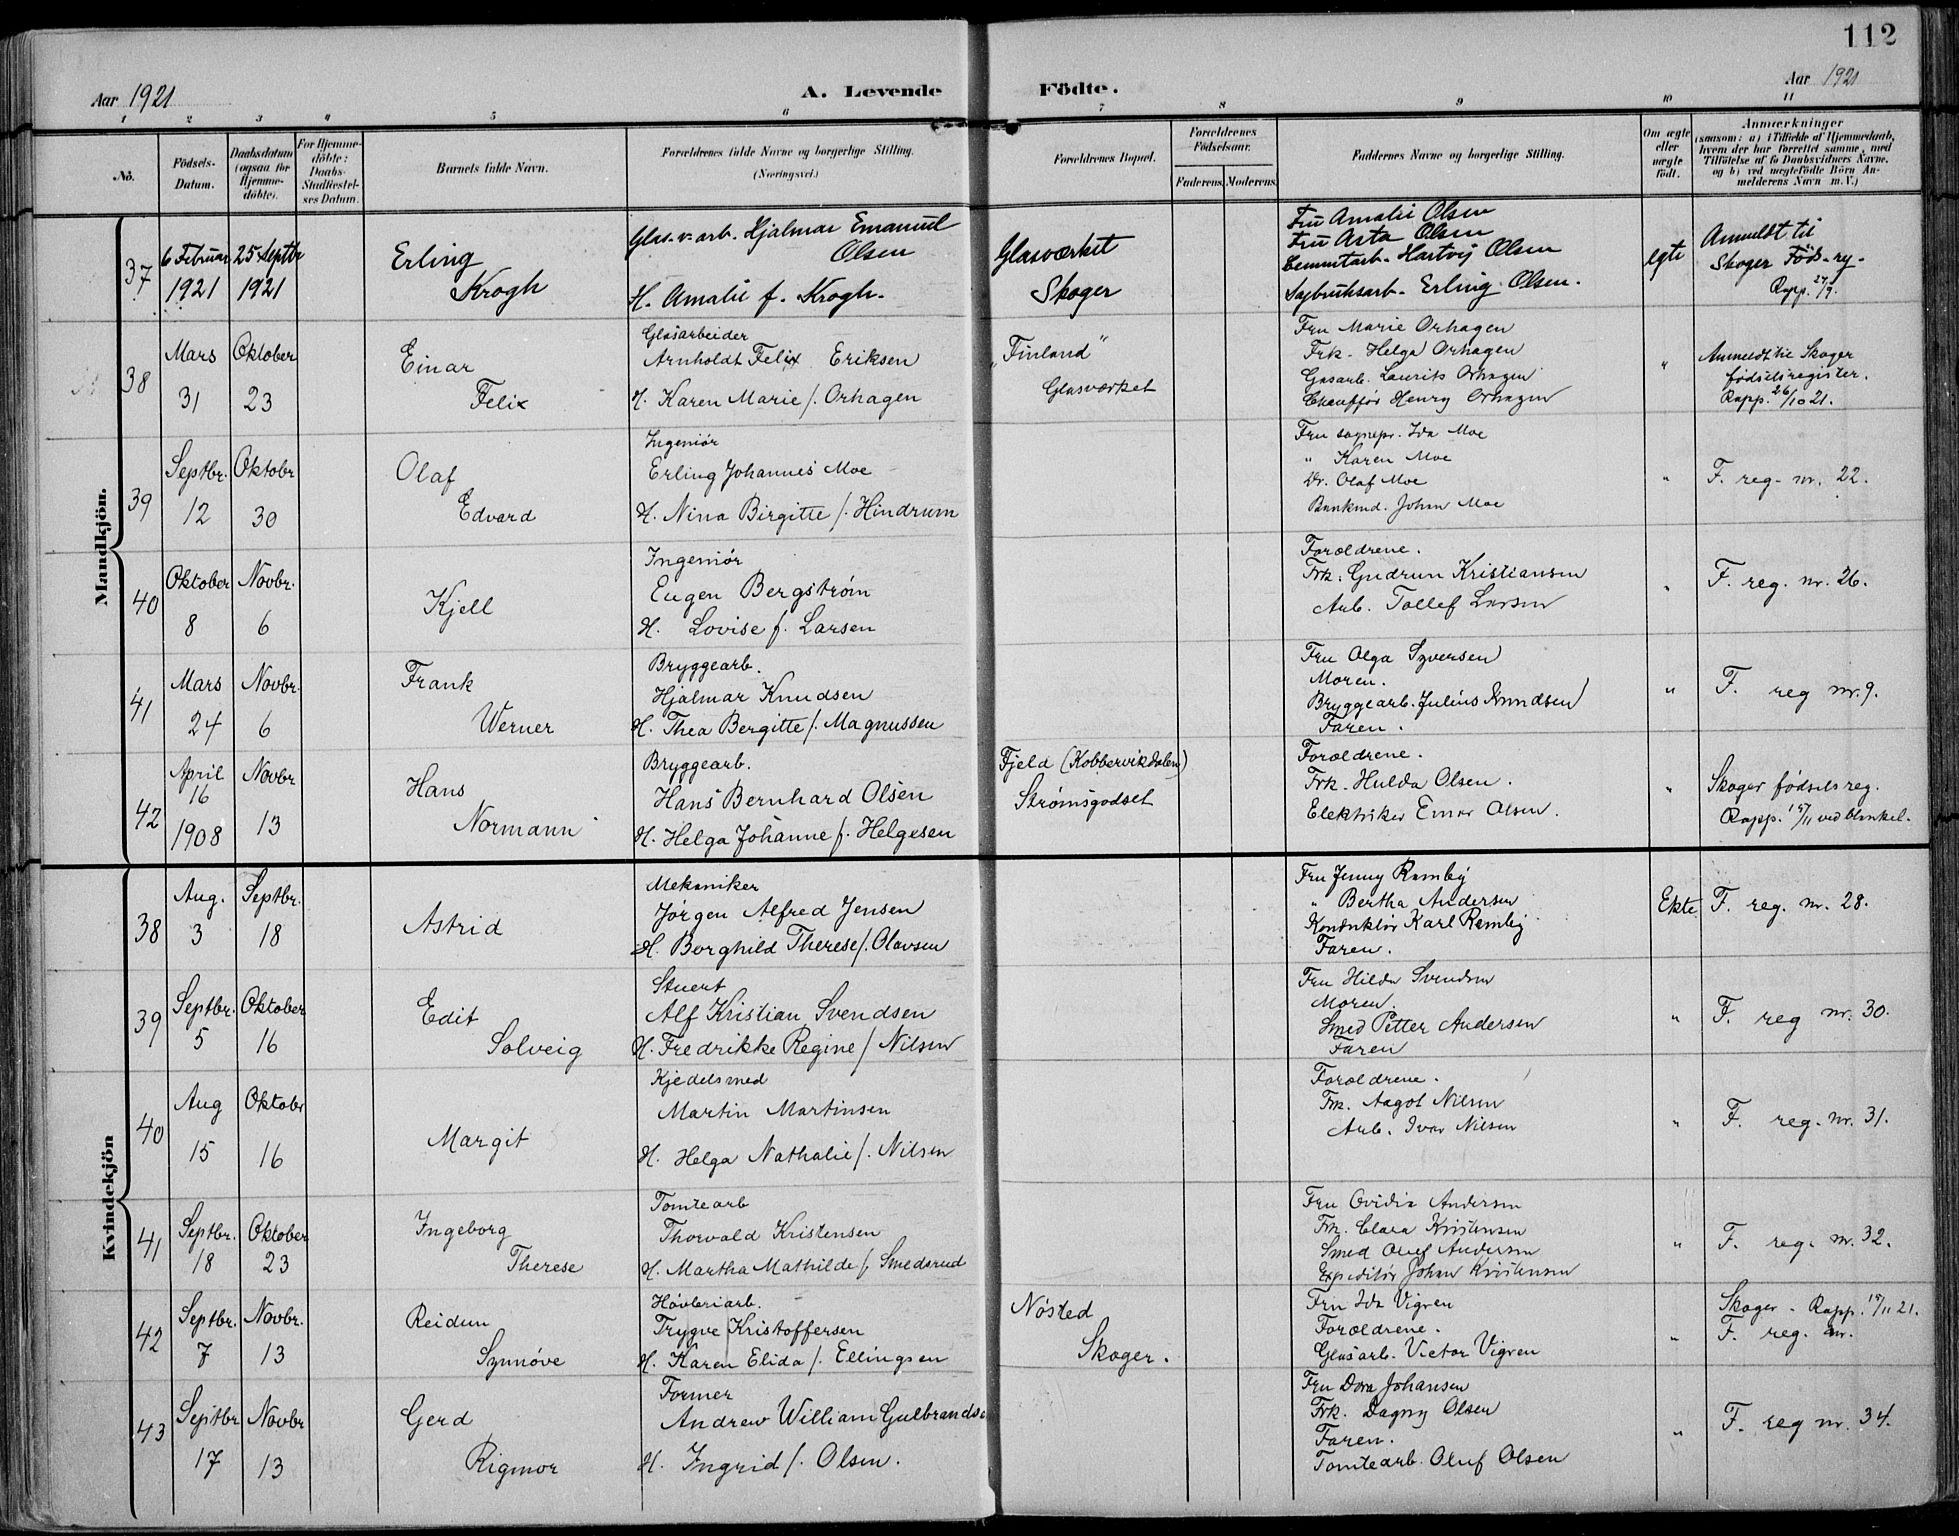 112
Aar 1921
A. Levende Födte.
Aar 1921
1 2 3 4 5 6 7 8 9 10 11
No.
Födsels-Datum.
Daabsdatum (ogsaa for Hjemme-döbte).
For Hjemme-döbte: Daabs-Stadfæstel-ses Datum.
Barnets fulde Navn.
Forældrenes fulde Navne og borgerlige Stilling. (Næringsvei.)
Forældrenes Bopæl.
Forældrenes Födselsaar.
Faderens. Moderens.
Faddernes Navne og borgerlige Stilling.
Om ægte eller uægte födt.
Anmærkninger
(saasom: a) i Tilfælde af Hjemmedaab, hvem der har forrettet samme, med Tilföielse af to Daabsvidners Navne. og b) ved uægtefödte Börn An-melderens Navn m. V.)
Mandkjön.
37
6 Februar 1921
25 Septbr 1921
Erling
Krogh
Glas.v. arb. Hjalmar Emanuel
Olsen
H. Amalie f. Krogh.
Glasværket
Skoger
Fru Amalie Olsen
Fru Asta Olsen
Cementarb. Hartvij Olsen
Sagbruksarb. Erling Olsen.
egte
Anmeldt til
Skoger Föds-rg.
Rapp. 27/9.
38
Mars 31
Oktober 23
Einar
Felix
Glasarbeider
Arnholdt Felix Eriksen
H. Karen Marie f. Orhagen
"Finland"
Glasværket
Fru Marie Orhagen
Frk. Helga Orhagen
Gasarb. Laurits Orhagen
Chauffør Henry Orhagen
"
Anmeldt til Skoger
fødselsregister.
Rapp. 26/10 21.
39
Septbr. 12
Oktobr 30
Olaf
Edvard
Ingeniør
Erling Johannes Moe
H. Nina Birgitte f. Hindrum
Fru sognepr. Ida Moe
" Karen Moe
Dr. Olaf Moe
Johan Moe
"
F. reg. nr. 22.
40
Oktober 8
Novbr. 6
Kjell
Ingeniør
Eugen Bergstrøm
H. Lovise f. Larsen
Forældrene.
Frk. Gudrun Kristiansen
Arb. Tollef Larsen
"
F. reg. nr. 26.
41
Mars 24
Novbr. 6
Frank
Werner
Bryggearb.
Hjalmar Knudsen
H. Thea Bergitte f. Magnussen
Fru Olga Syversen
Moren.
Bryggearb. Julius Knudsen
Faren.
"
F. reg nr. 9.
42
April 16 1908
Novbr 13
Hans
Normann
Bryggearb.
Hans Bernhard Olsen
H. Helga Johanne f. Helgesen
Fjeld (Kobbervikdalen)
Strømsgodset
Forældrene.
Frk. Hulda Olsen.
Elektriker Einar Olsen.
"
Skoger fødselsreg.
Kvindekjön
38
Aug. 3
Septbr. 18
Astrid
Mekaniker
Jørgen Alfred Jensen
H. Borghild Therese f. Olavsen
Fru Jenny Remby
" Bertha Andersen
Konduktør Karl Remby
Faren.
Ekte
F. reg. nr. 28.
39
Septbr. 5
Oktober 16
Edit
Solveig
Stuert
Alf Kristian Svendsen
H. Fredrikke Regine f Nilsen
Fru Hilda Svendsen
Moren.
Smed Petter Andersen
Faren
"
F. reg nr. 30.
40
Aug 15
Oktobr 16
Margit
Kjedelsmed
Martin Martinsen
H. Helga Nathalie f. Nilsen
Forældrene.
Frk. Aagot Nilsen
Arb. Ivar Nilsen
"
F. reg. nr. 31.
41
Septbr. 18
Oktober 23
Ingeborg
Therese
Tomtearb
Thorvald Kristensen
H. Martha Mathilde f Smedsrud
Fru Ovidia Andersen
Frk. Clara Kristensen
Smed Oluf Andersen
Expeditør Johan Kristensen
"
F. reg. nr. 32.
42
Septbr. 7
Novbr. 13
Reidun
Synnøve
Høvleriarb.
Trygve Kristoffersen
H. Karen Elida f. Ellingsen
Nøsted
Skoger.
Fru Ida Vigren
Forældrene.
Glasarb. Victor Vigren
"
Skoger. Rapp. 17/11 21.
F. reg. nr.
43
Septbr 17
Novbr 13
Gerd
Rigmor
Former
Andrew William Gulbrands
H. Ingrid f. Olsen.
Fru Dora Johansen
Frk. Dagny Olsen
Faren.
Tomtearb. Oluf Olsen
"
F. reg nr. 34.